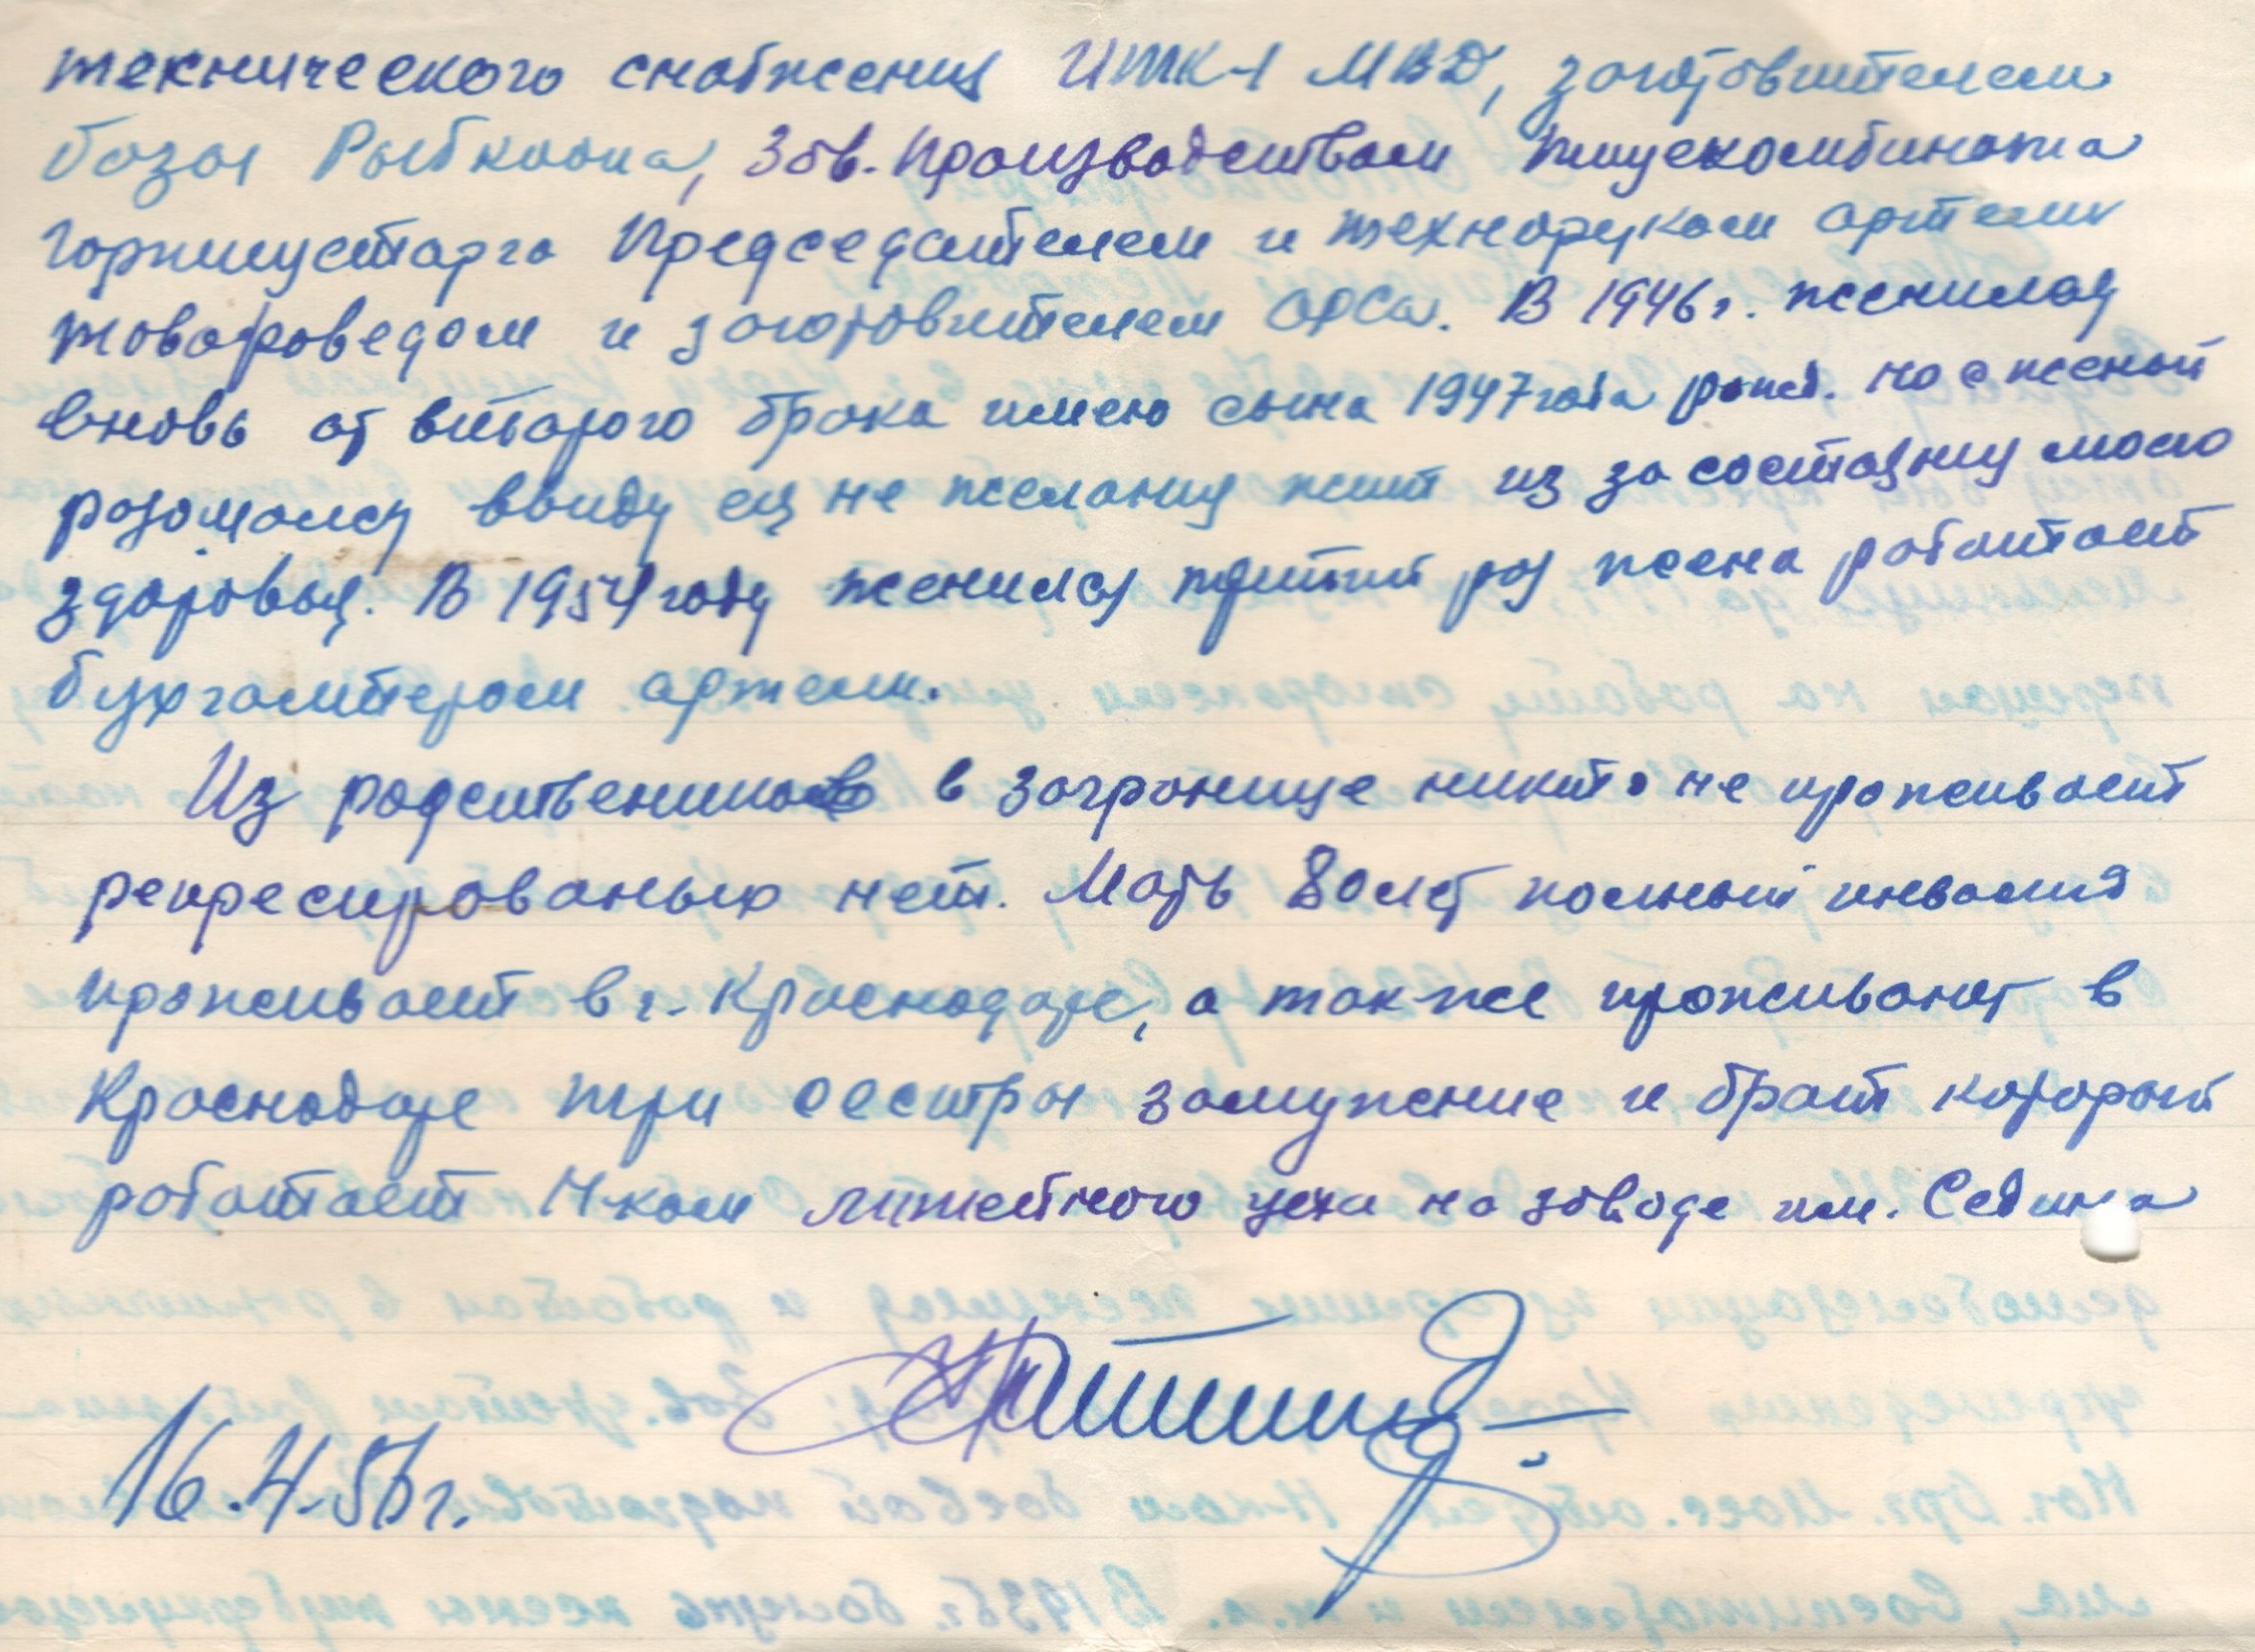 технического снабжения ИТК-1 МВД, заготовителем
базы Рыбкоопа, Зав. производством пищекомбината
Горпищеторга Председателем и техноруком артели
товароведом и заготовителем ОРСа. В 1946 г. женился
вновь от второго брака имею сына 1947 года рожд. но с женой
разошлись ввиду ея не желания жить из за состояния моего
здоровья. В 1954 году женился третий раз жена работает
бухгалтером артели.
Из родственников в загранице никто не проживает
репресированых нет. Мать 80 лет полный инвалид
проживает в г. Краснодаре, а так-же проживают в
Краснодаре три сестры замужение и брат который
работает Н-ком литейного цеха на заводе им. Седина
16.4.56 г.